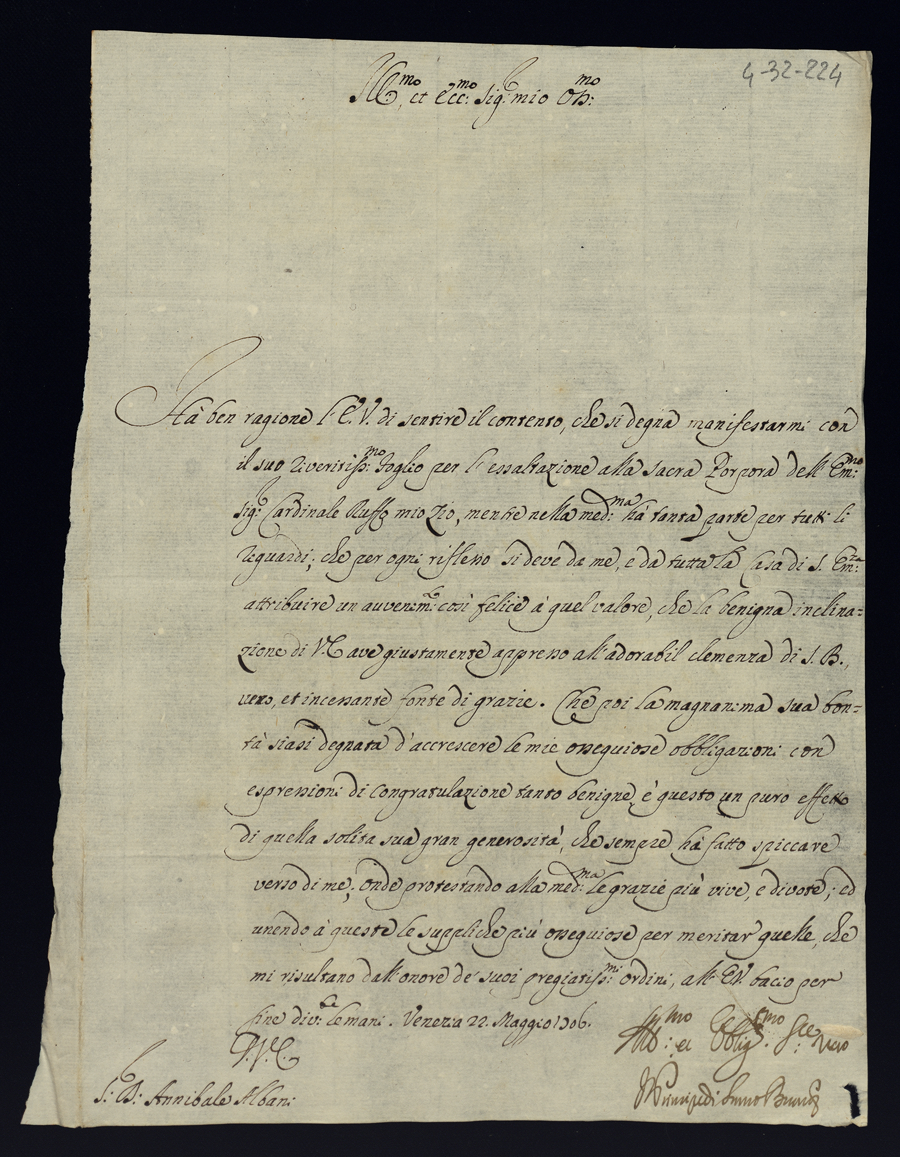 4-32-224
Ill.mo et Ecc.mo Sig.r mio Oss.mo
Hà ben ragione l'E.V. di sentire il contento, che si degna manifestarmi con
il suo riveritiss.mo foglio per l'essaltazione alla sacra Porpora dell'Em.mo
Sig.r Cardinale Ruffo mio Zio, mentre nella med.ma hà tanta parte per tutti li
riguardi; che per ogni riflesso si deve da me, e da tutta la Casa di S. Em.za
attribuire un avvenim.to così felice à quel valore, che la benigna inclina=
zione di V.E. ave giustamente appresso all'adorabil clemenza di S. B.,
vero, et incessante fonte di grazie. Che poi la magnanima sua bon=
tà siasi degnata d'accrescere le mie osseguiose obbligazioni con
espressioni di congratulazione tanto benigne, è questo un puro effetto
di quella solita sua gran generosità, che sempre hà fatto spiccare
verso di me; Onde protestando alla med.ma le grazie più vive, e divote; ed
unendo à queste le suppliche più osseguiose per meritar quelle, che
mi risultano dall'onore de' suoi pregiatiss.mi ordini, all'E.V. bacio per
fine div.te le mani. Venezia 22. Maggio 1706.
D.V.E.
S.r D. Annibale Albani
et Obblig.mo Vero